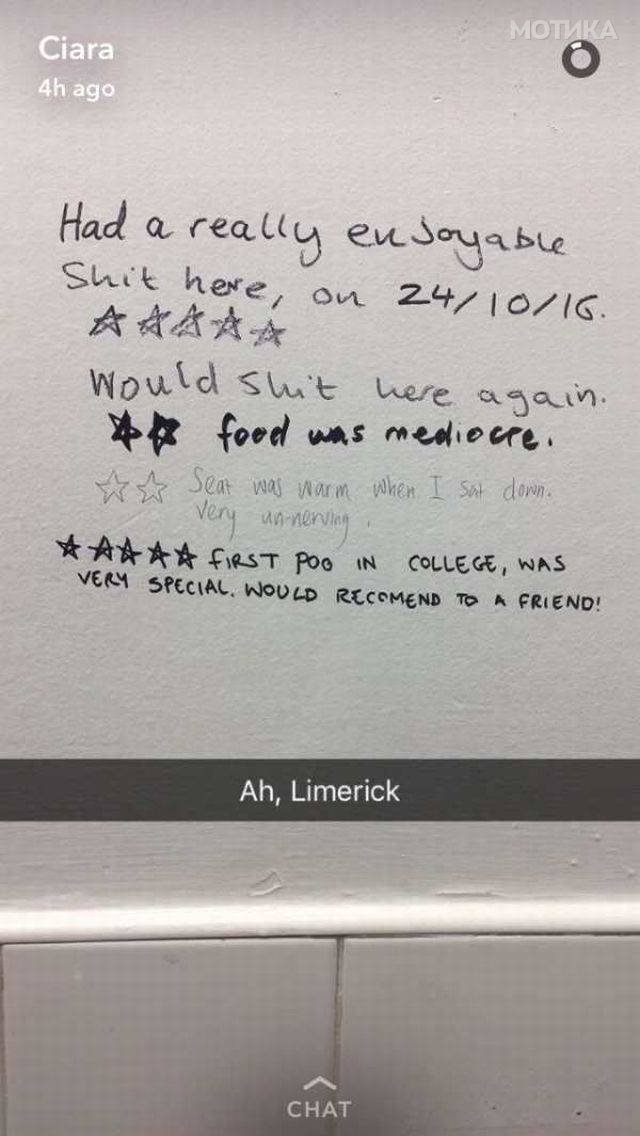 МОТИКА
Ciara
4h ago
Had a really enjoyable
Shit here, on 24/10/16.
☆☆☆☆☆
Would shit here again.
★★ food was mediocre.
☆☆ Seat was warm when I sat down.
Very un-nerving.
★★★★★ FIRST POO IN COLLEGE, WAS
VERY SPECIAL. WOULD RECOMEND TO A FRIEND!
Ah, Limerick
CHAT